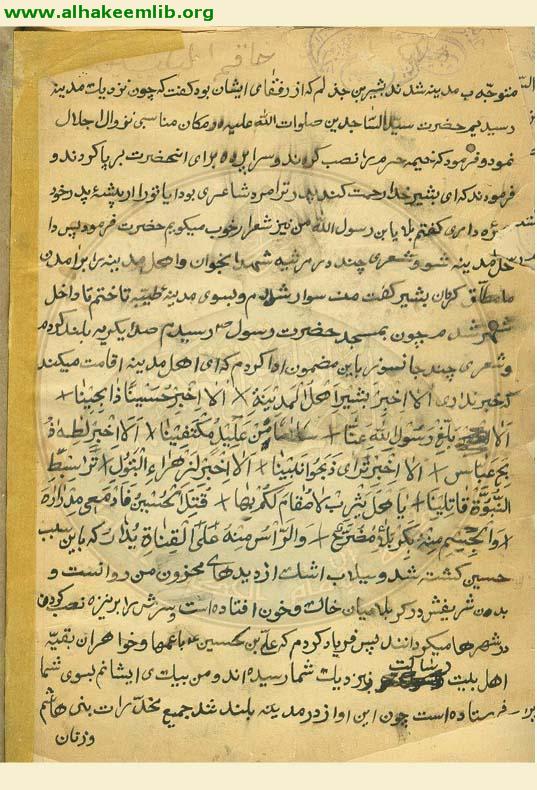 www.alhakeemlib.org
متوجّه ب مدینه شدند بشیر بن جذلم که از رفقای ایشان بود گفت که چون نزدیك مدینه
رسیدیم حضرت سیّد السّاجدین صلوات الله علیه در مکان مناسبی نزول اجلال
نمود و فرمود که خیمه حرم را نصب کردند و سراپرده برای انحضرت برپا کردند و
فرمودند که ای بشیر خدا رحمت کند پدر ترا مرد شاعری بود ایا تو را از پیشهٔ پدر خود
بهرهٔ داری گفتم بلی یابن رسول الله من نیز شعر را خوب میکویم حضرت فرمود پس دا
خل مدینه شو و شعری چند در مرثیه شهدا بخوان و اهل مدینه را بر امدن
ما مطلق کردان بشیر کفت من سوار شدم و بسوی مدینه طیّبه تاختم تا داخل
شهر شدم چون بمسجد حضرت رسول ص رسیدم صدا بکریه بلند کردم
و شعری چند جانسوز باین مضمون ادا کردم که ای اهل مدینه اقامت میکند
که خبر نداری الا اخبر بشیر اهل المدینة الا اخبر حسینا
الا بلغ رسول الله عنا الا اخبر
بنی عباس الا اخبر الا اخبر لزهراء البتول
النبوّة قاتلینا یا اهل یثرب لا مقام لکم بها قتل الحسین فادمعی مدرارة
والجسم منه بکربلاء مضرّج والرّاس منه علی القناة یدار که باین سبب
حسین کشته شد و سیلاب اشك از دیدهای محزون من روانست و
بدن شریفش در کربلا میان خاك و خون افتاده است و سرش را بر نیزه نصب کرده
در شهرها میکردانند پس فریاد کردم که علی بن الحسین با عمها و خواهران بقیّه
اهل بیت رسالت نزدیك شما رسیده اند و من پیك ایشانم بسوی شما
فرستاده است چون این اواز در مدینه بلند شد جمیع مخدّرات بنی هاشم
و زنان